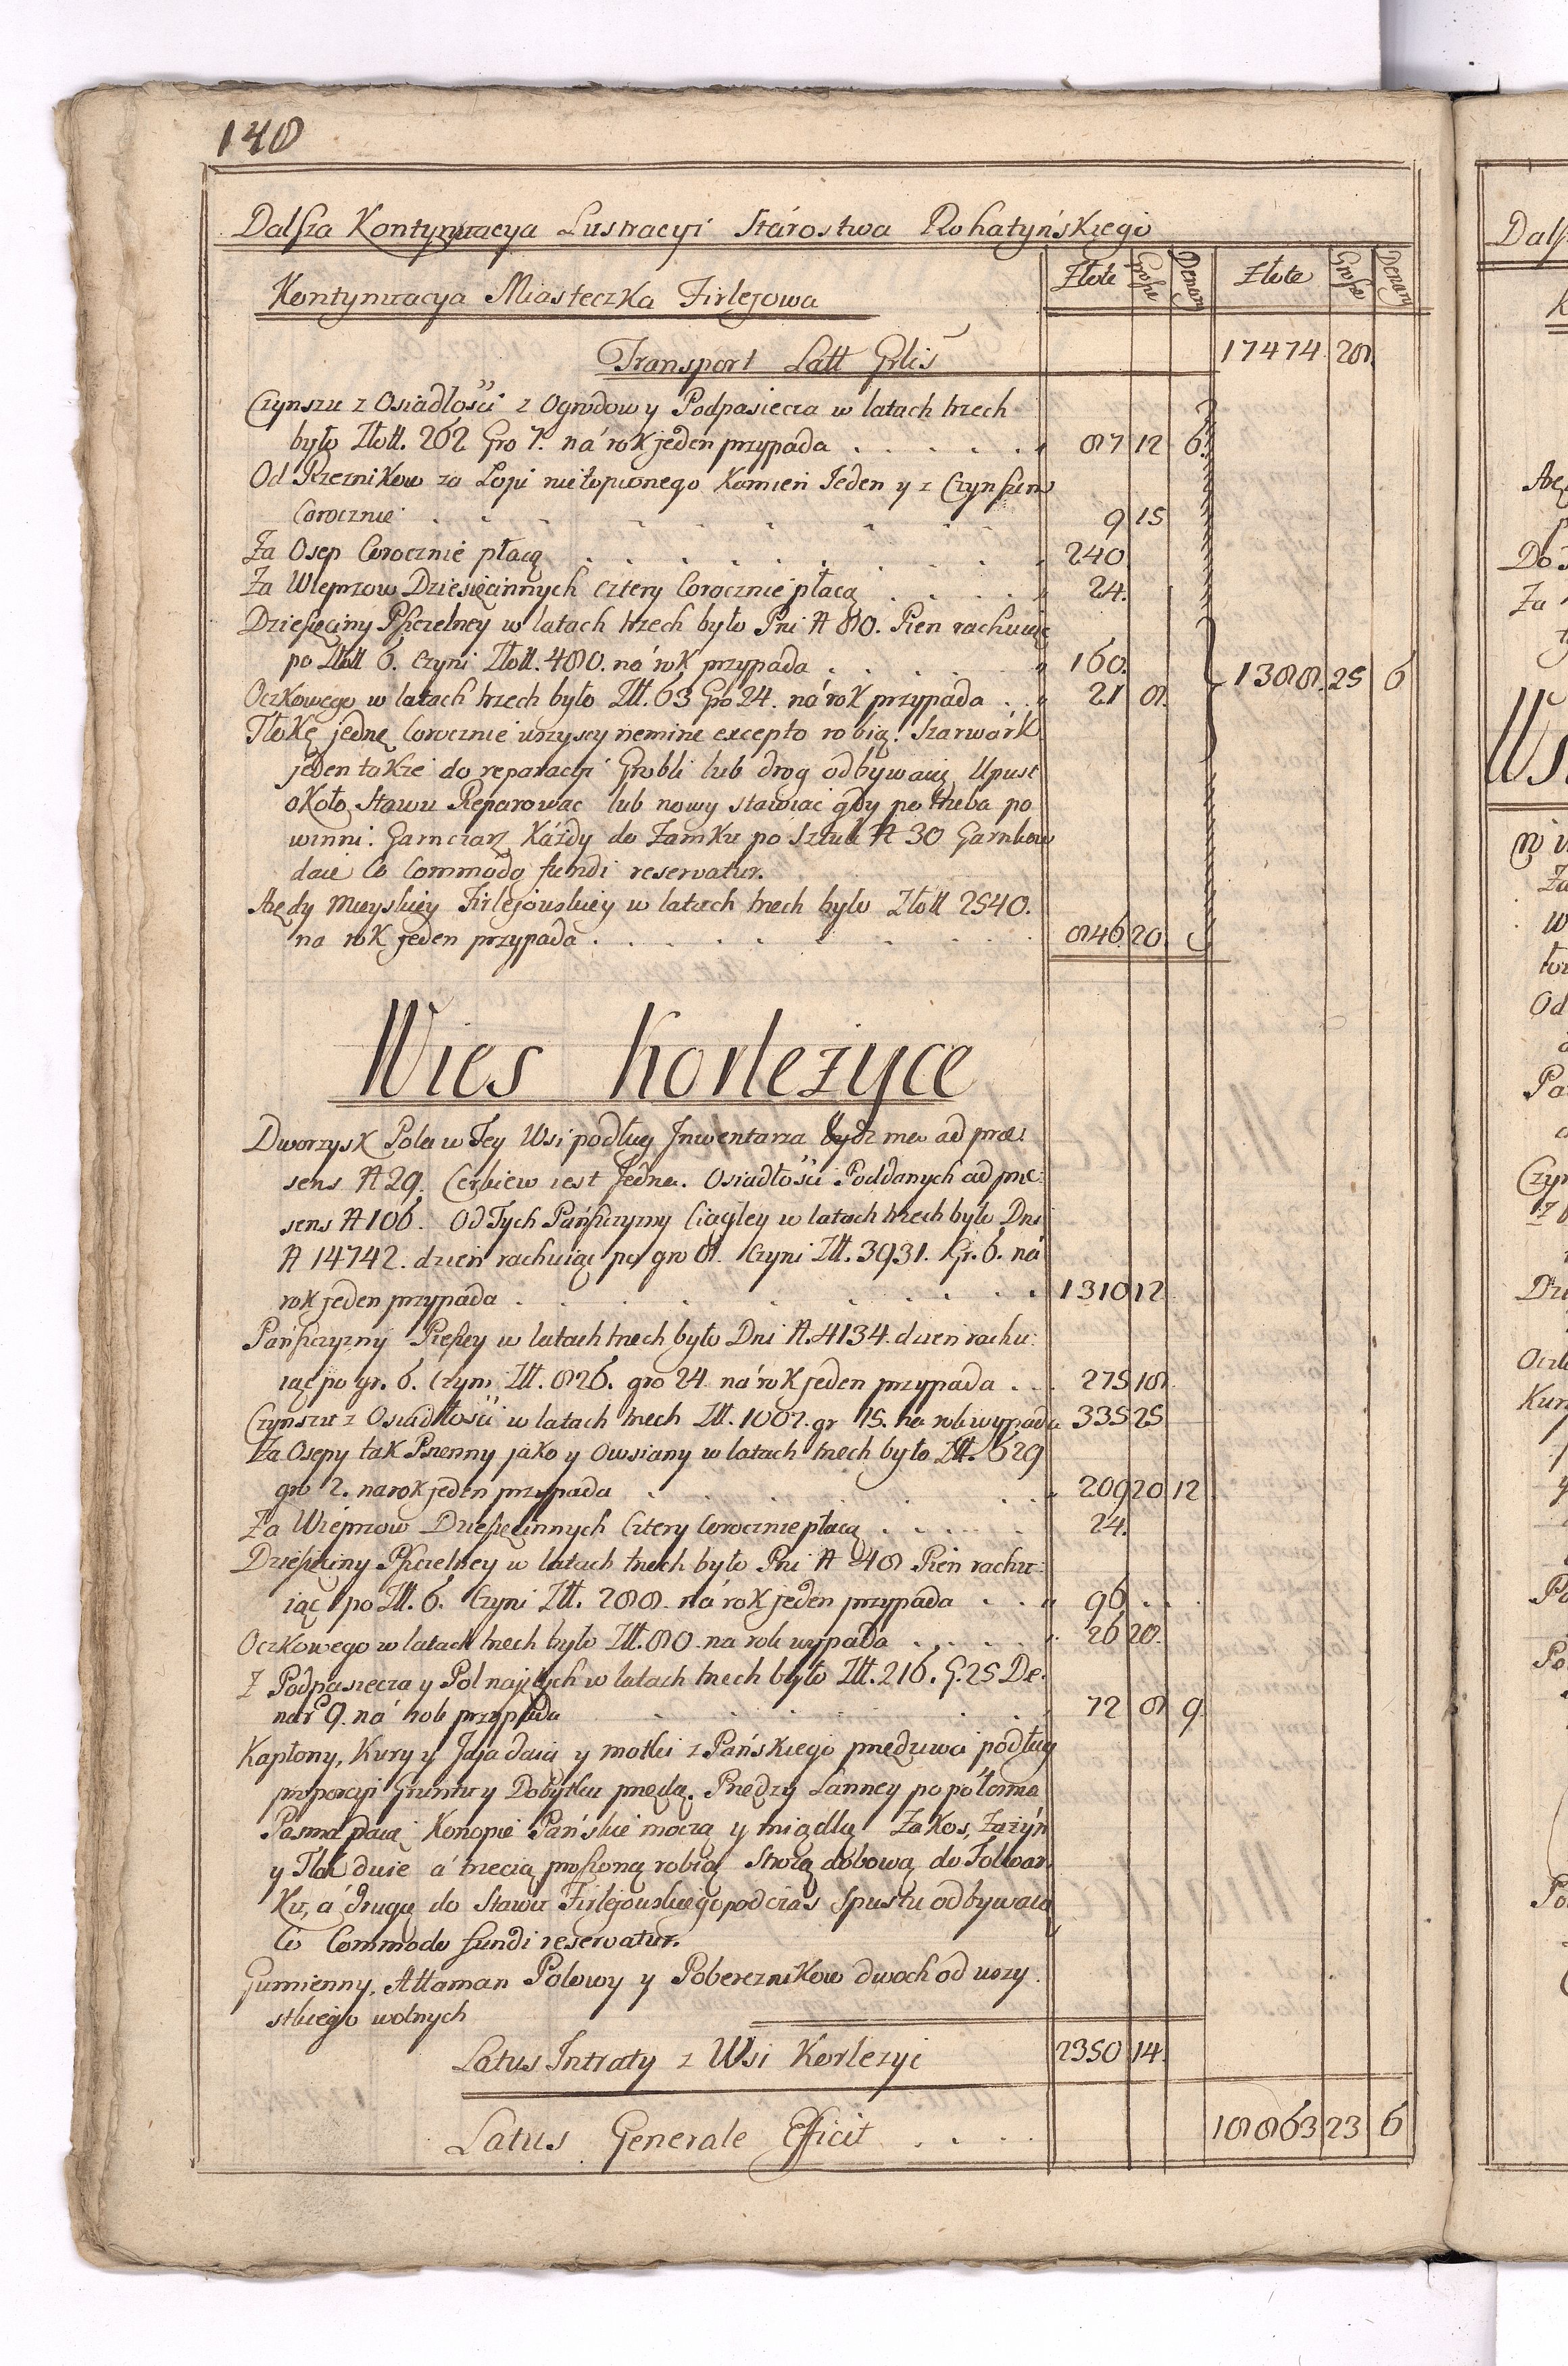 148
Dalsza Kontynuacya Lustracyi Stárostwa Rohatyńskiego
Kontynuacya Miasteczka Firlejowa
Złote Grosze Denary Złote Grosze Denary
Transport Latt Gplis 17474 28
Czynszu z Osiadłości z Ogrodow y Podpasiecza w latach trzech
było Złott. 262 Gro 7. ná rok jeden przypada 87 12 6
Od Rzeznikow za Loju nietopionego Kamień Jeden y z Czynszem
Corocznie 9 15
Za Osep Corocznie płacą 240
Za Wieprzow Dziesięcinnych cztery Corocznie płacą 24.
Dziesięciny Pszczelney w latach trzech było Pni N 80. Pień rachuiąc
po Złott 6. czyni Złott. 480. ná rok przypada 160. 1388. 25 6
Oczkowego w latach trzech było Złt. 63 Gro 24. ná rok przypada 21 8.
Tłokę jednę Corocznie wszyscy nemine excepto robią. Szarwárk
jeden także do reparacyi Grobli lub drog odbywaią Upust
około Stawu Reparować lub nowy stawiać gdy potrzeba po
winni. Garncarz Káżdy do Zamku po Sztuk N 30 Garnkow
daie Co Commodo fundi reservatur.
Arędy Mieyskiey Firlejowskiey w latach trzech było Złott 2540.
na rok jeden przypada 846 20
Wies Korleżyce
Dworzysk Pola w Tey Wsi podług Inwentarza bydz ma ad prae:
sens N 29. Cerkiew iest Jedna. Osiadłości Poddanych ad prae:
sens N 106. Od Tych Pańszczyzny Ciągley w latach trzech było Dni
N 14742. dzień rachuiąc po gro 8. czyni Złt. 3931. Gr. 6. ná
rok jeden przypáda 1310 12
Pańszczyzny Pieszey w latach trzech było Dni N. 4134. dzień rachu:
iąc po gr. 6. czyni Złt. 826. gro 24 ná rok jeden przypada 275 18
Czynszu z Osiadłości w latach trzech Złt. 1007. gr 15. na rok wypada 335 25
Za Osepy tak Pszenny jako y Owsiany w latach trzech było Złt. 629
gro 2. na rok jeden przypada 209 20 12
Za Wieprzow Dziesięcinnych Cztery Corocznie płacą 24.
Dziesięciny Pszczelney w latach trzech było Pni N 48 Pień rachu:
iąc po Złt. 6. Czyni Złt. 288. ná rok jeden przypada 96
Oczkowego w latach trzech było Złt. 80. na rok wypada 26 20.
Z Podpasiecza y Pol najętych w latach trzech było Złt. 216. G. 25 De:
nar 9. ná rok przypada 72 8 9
Kapłony, Kury y Jaja daią y motki z Páńskiego przędziwa podług
proporcyi Gruntu y Dobytku przędą. Przędzy Łanney po półtorna
Pasma daią Konopie Pańskie moczą y międlą Zakos, Zażyn
y Tłok dwie á trzecią proszoną robią Strożą dobową do Folwar:
Ku, á drugą do Stawu Firlejowskiego podczas Spustu odbywaią
Co Commodo fundi reservatur.
Gumienny, Attaman Polowy y Pobereznikow dwoch od wszy:
stkiego wolnych
Latus Intraty z Wsi Korlezyc 2350 14.
Latus Generale Efficit 18863 23 6